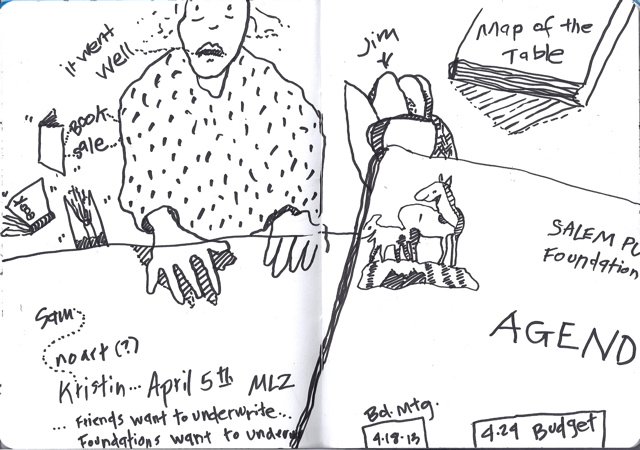 it went
well
BOOK
sale
Sam
no art (?)
Kristin... April 5th MLZ
... Friends want to underwrite...
Foundations want to underw
Jim
Map of the
Table
SALEM PU
Foundation
AGEND
Bd. Mtg.
4.18.13
4.24 Budget